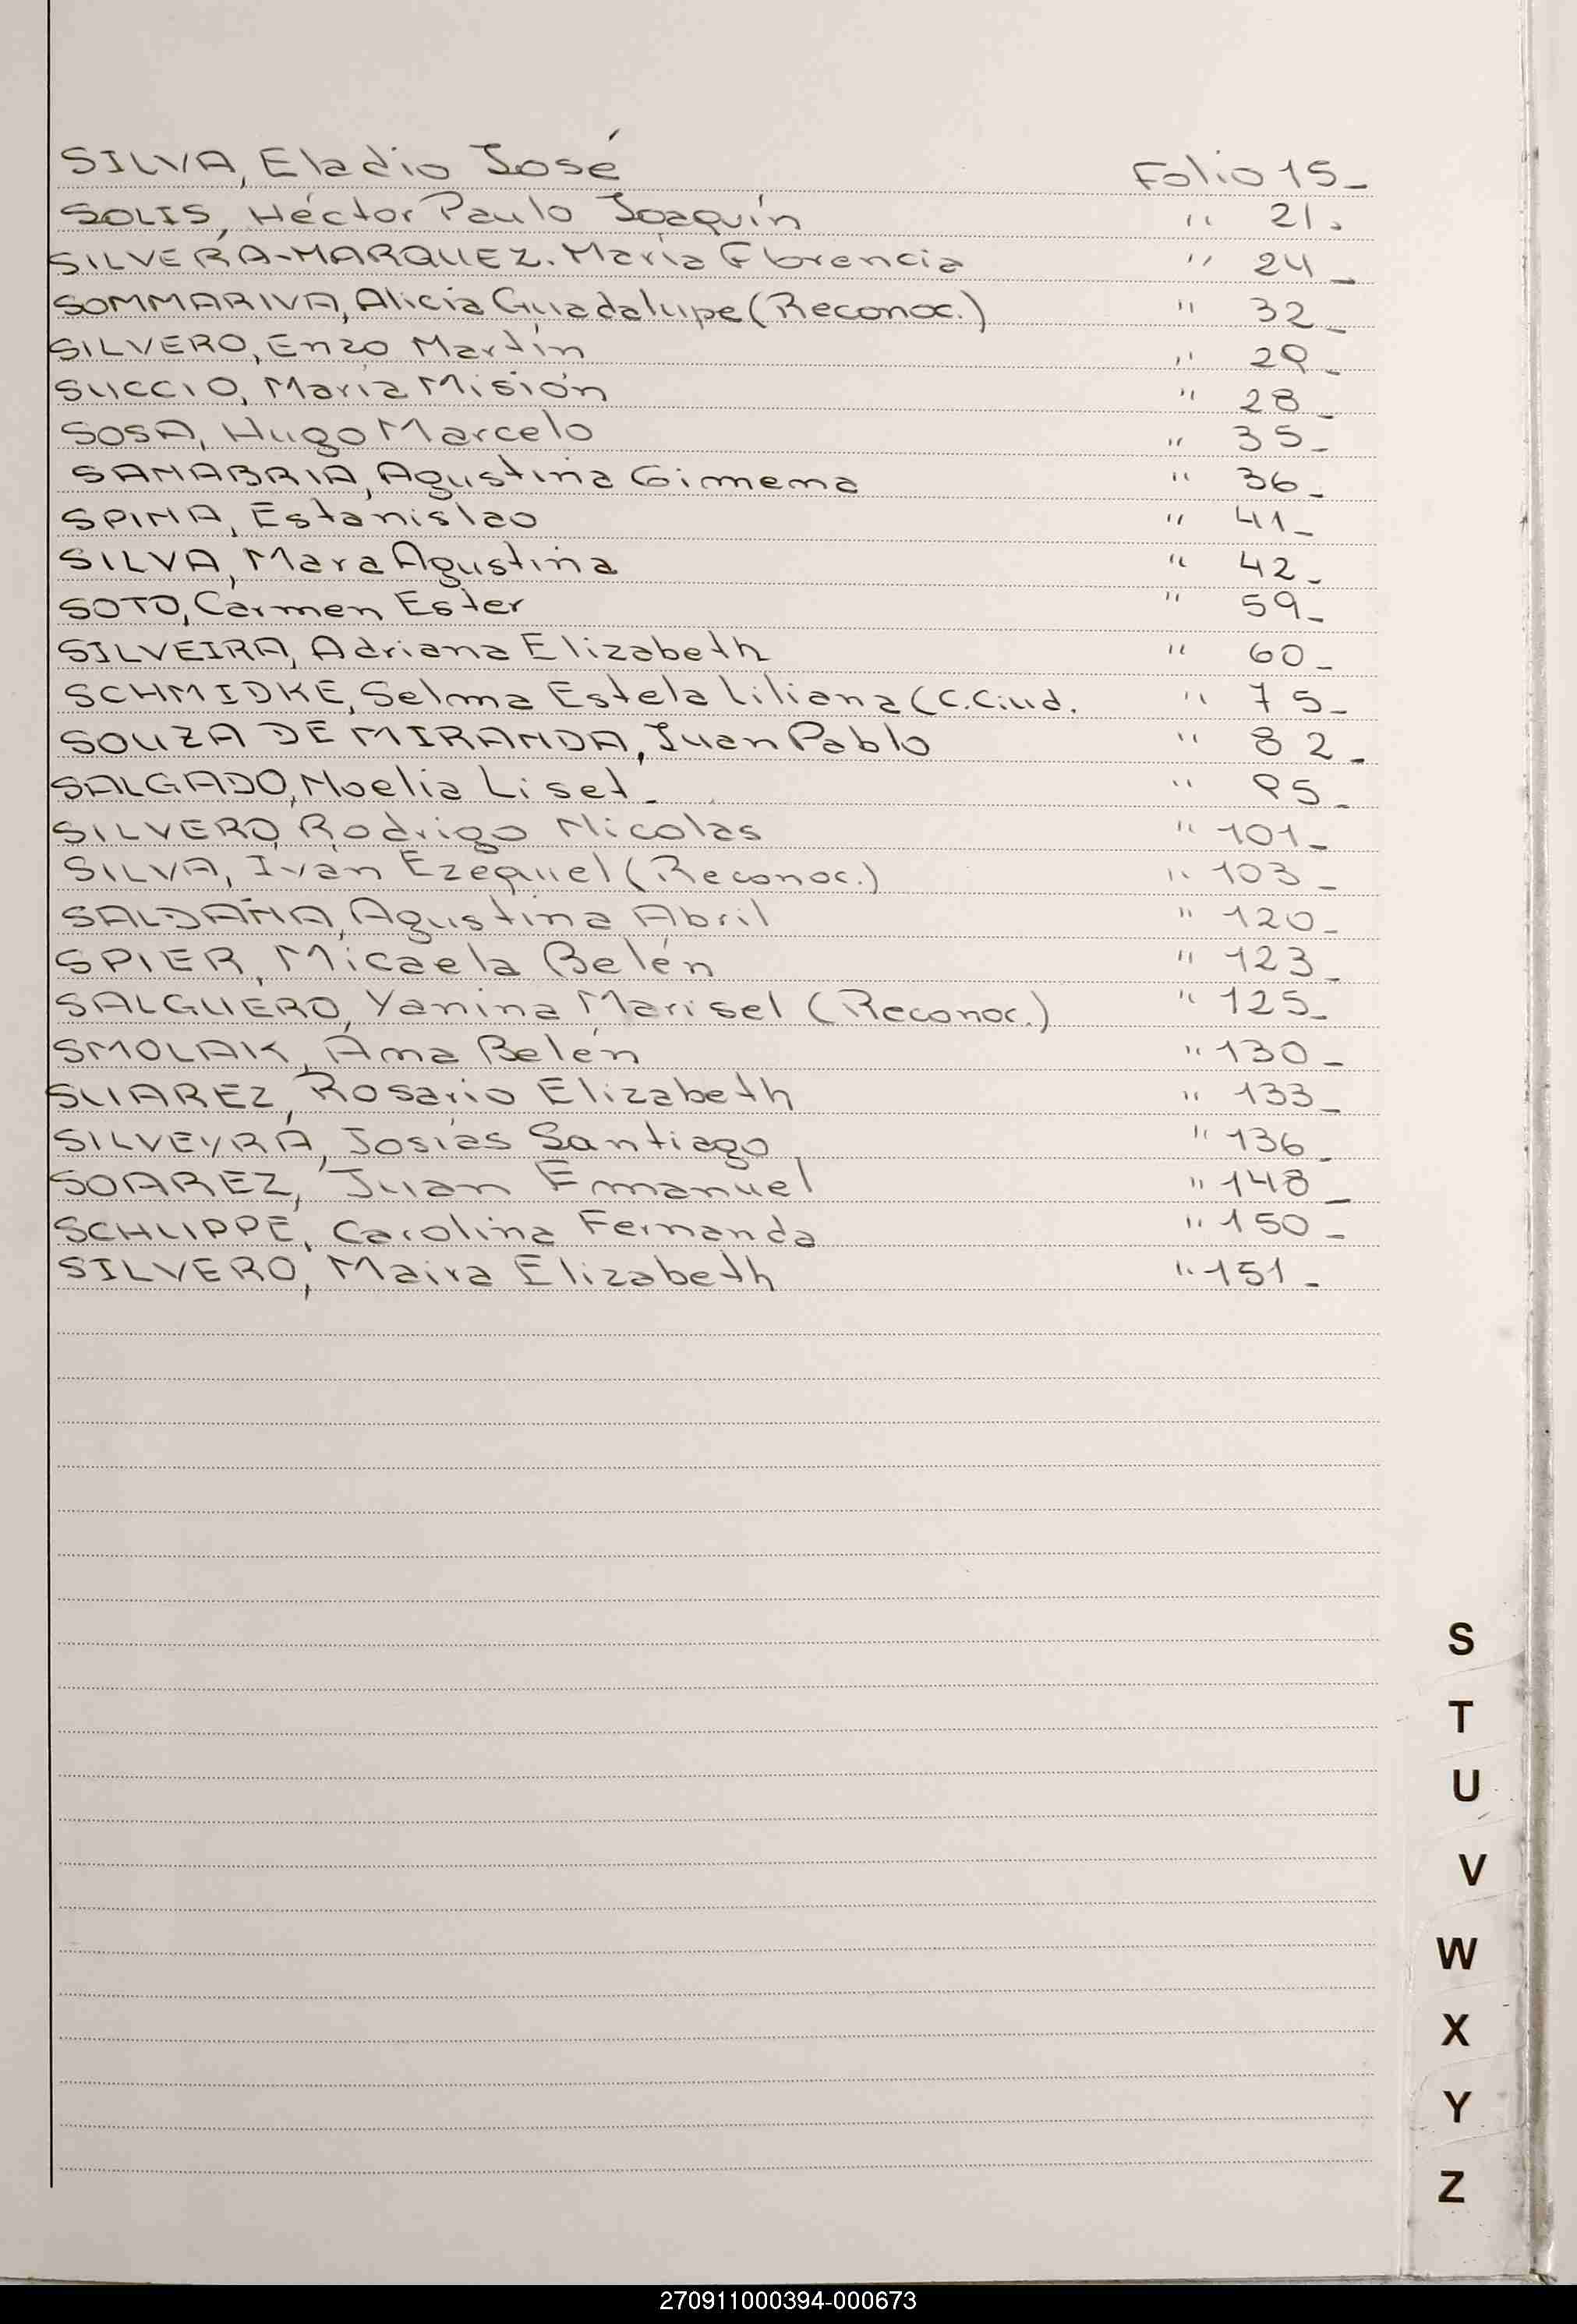 SILVA, Eladio José Folio 15_
SOLIS, Héctor Paulo Joaquín " 21.
SILVERA-MARQUEZ. María Florencia " 24_
SOMMARIVA, Alicia Guadalupe (Reconoc.) " 32_
SILVERO, Enzo Martín " 29_
SUCCIO, María Misión " 28_
SOSA, Hugo Marcelo " 35_
SANABRIA, Agustina Gimena " 36_
SPINA, Estanislao " 41_
SILVA, Mara Agustina " 42_
SOTO, Carmen Ester " 59_
SILVEIRA, Adriana Elizabeth " 60_
SCHMIDKE, Selma Estela Liliana (C.Ciud. " 75_
SOUZA DE MIRANDA, Juan Pablo " 82_
SALGADO, Noelia Liset_ " 95_
SILVERO, Rodrigo Nicolas " 101_
SILVA, Iván Ezequiel (Reconoc.) " 103_
SALDAÑA, Agustina Abril " 120_
SPIER, Micaela Belén " 123_
SALGUERO, Yanina Marisel (Reconoc.) " 125_
SMOLAK, Ana Belén " 130_
SUAREZ, Rosario Elizabeth " 133_
SILVEYRA, Josías Santiago " 136_
SOAREZ, Juan Emmanuel " 148_
SCHUPPE, Carolina Fernanda " 150_
SILVERO, Maira Elizabeth " 151_
S
T
U
V
W
X
Y
Z
270911000394-000673